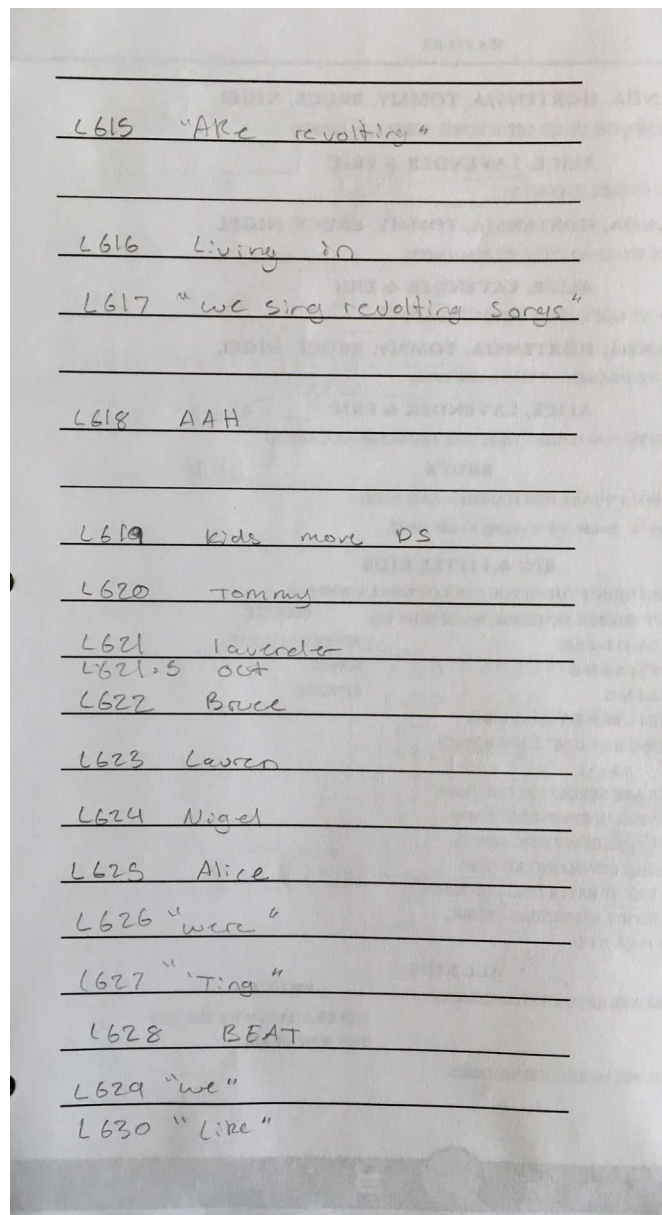 L615 "ARe revolting"
L616 Living in
L617 "we sing revolting songs"
L618 AAH
L619 kids move DS
L620 Tommy
L621 lavender
L621.5 out
L622 Bruce
L623 Lauren
L624 Nigel
L625 Alice
L626 "were"
L627 "Ting"
L628 BEAT
L629 "we"
L630 "Like"